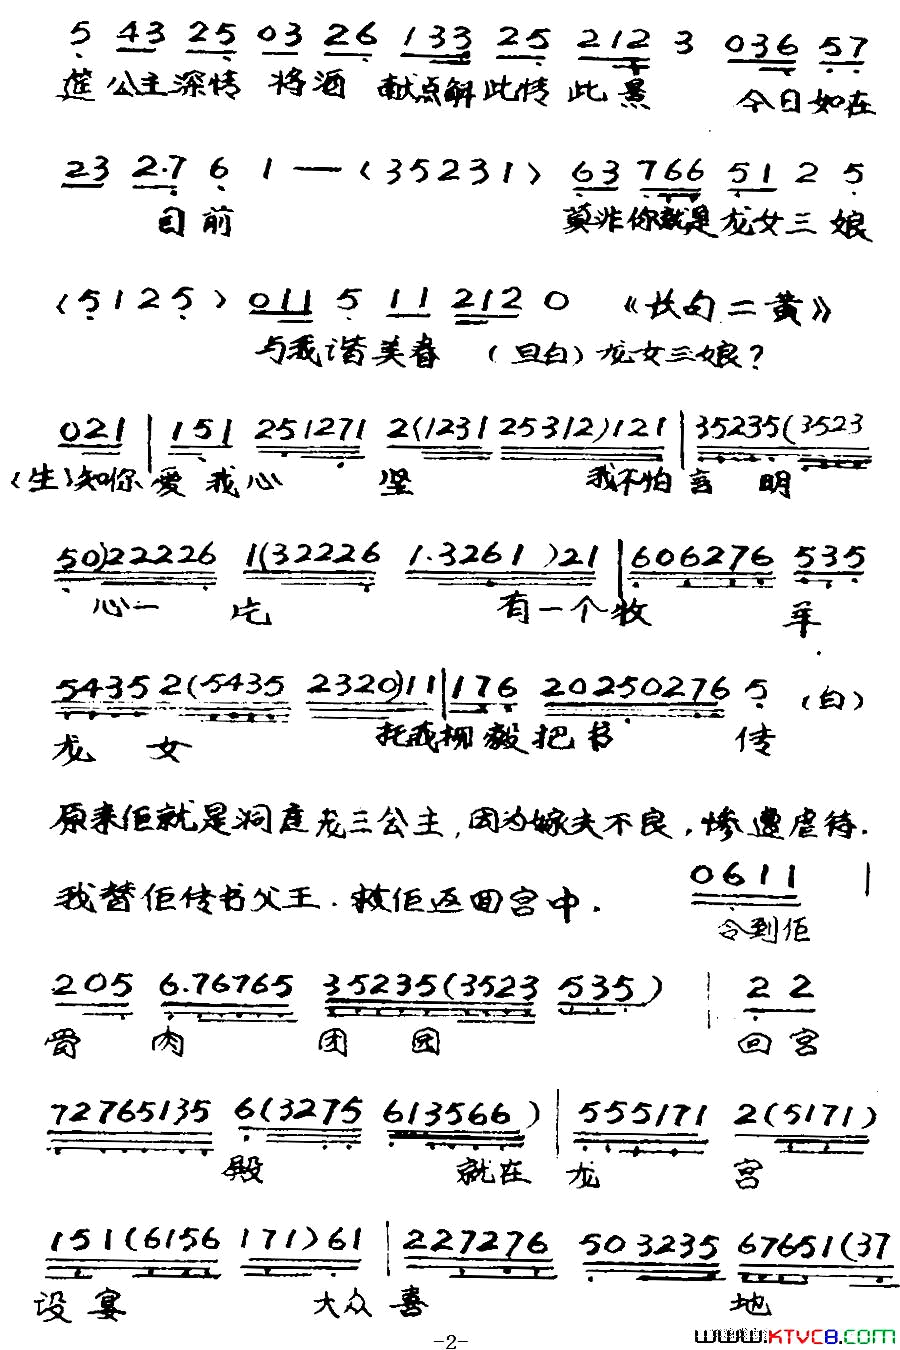 5 43 25 03 26 133 25 212 3 036 57
莲公主深情 将酒 献点解此情此景 今日如在
23 2·7 6 1 — (35231) 63 766 51 2 5
目前 莫非你就是龙女三娘
(5125) 011 5 11 212 0 《长句二黄》
与我谐美眷 (旦白)龙女三娘?
021 | 151 251271 2(1231 25312)121 | 35235(3523
(生)知你爱我心 坚 我不怕言 明
50)22226 1(32226 1·3261)21 | 606276 535
心一 片 有一个牧 羊
54352(5435 2320)11 | 176 20250276 5 (白)
龙 女 托我柳毅把书 传
原来佢就是洞庭龙三公主,因为嫁夫不良,惨遭虐待.
我替佢传书父王.救佢返回宫中. 0611 |
令到佢
205 6·76765 35235(3523 535) | 22
骨 肉 团 圆 回宫
72765135 6(3275 613566) | 555171 2(5171)
殿 就在 龙 宫
151(6156 171)61 | 227276 503235 67651(37
设宴 大众喜 地
-2-
WWW.KTVC8.COM